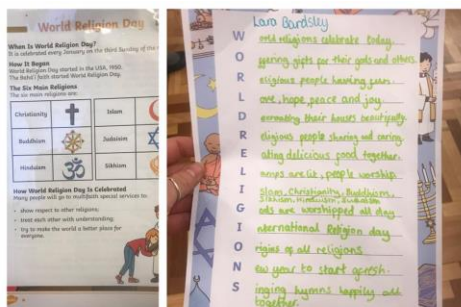 World Religion Day
When Is World Religion Day?
It is celebrated every January on the third Sunday of the
How It Began
World Religion Day started in the USA, 1950.
The Bahá'í faith started World Religion Day.
The Six Main Religions
The six main religions are:
Christianity
Islam
Buddhism
Judaism
Hinduism
Sikhism
How World Religion Day Is Celebrated
Many people will go to multifaith special services to:
show respect to other religions;
treat each other with understanding;
try to make the world a better place for
everyone.
Lara Bardsley
W orld religions celebrate today.
O ffering gifts for their gods and others.
R eligious people having fun.
L ove, hope, peace and joy.
D ecorating their houses beautifully.
R eligious people sharing and caring.
E ating delicious food together.
L amps are lit, people worship.
I slam, Christianity, Buddhism,
Sikhism, Hinduism, Judaism
G ods are worshipped all day
I nternational Religion day
O rigins of all religions
N ew year to start afresh.
S inging hymns happily all
together.